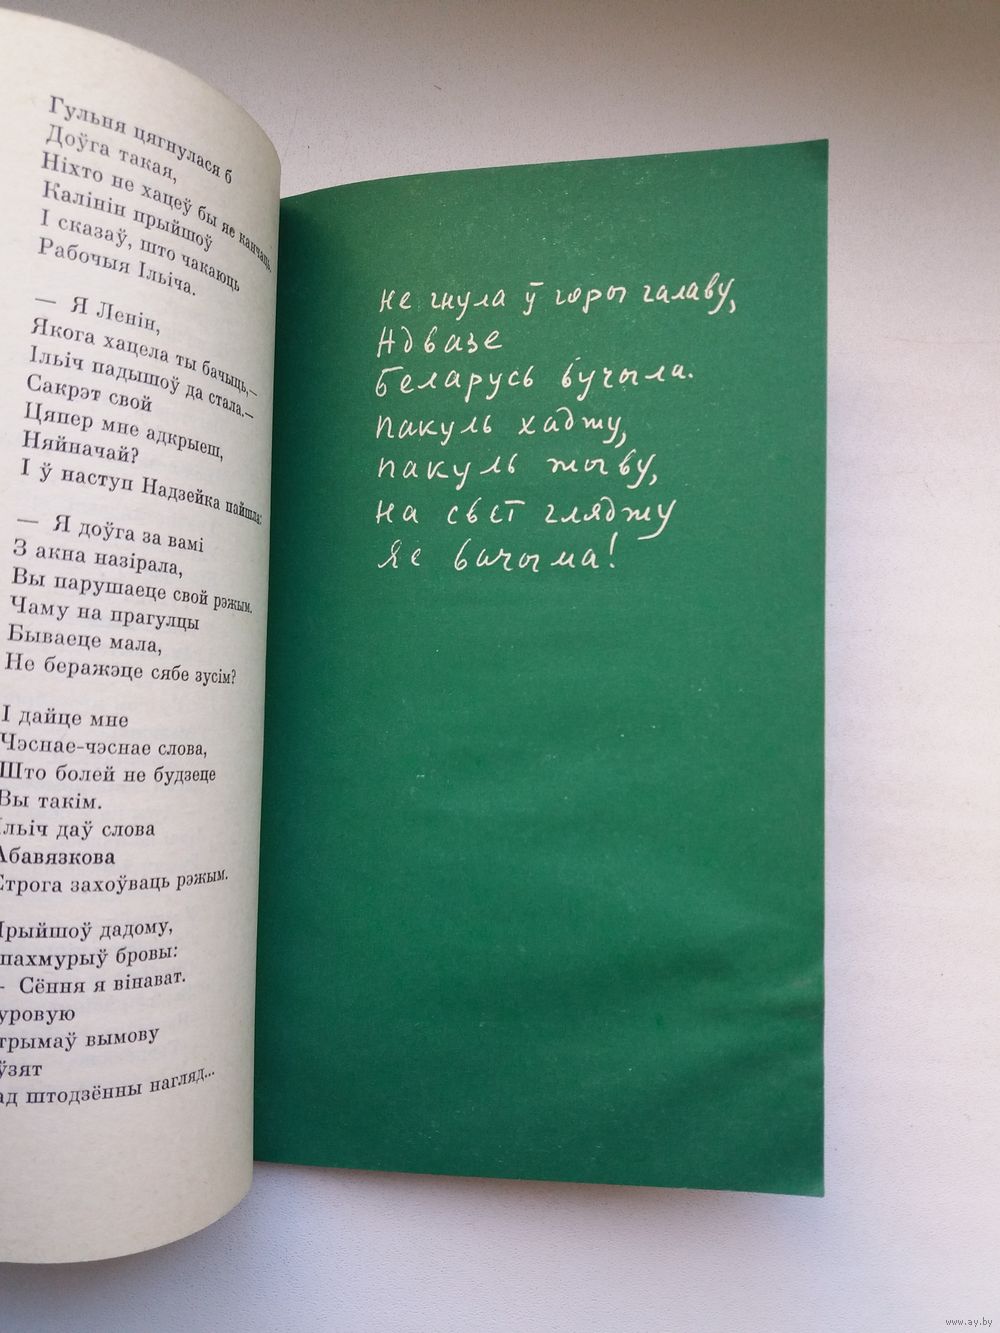 Гульня цягнулася б
Доўга такая,
Ніхто не хацеў бы яе канчаць.
Калінін прыйшоў
І сказаў, што чакаюць
Рабочыя Ільіча.
— Я Ленін,
Якога хацела ты бачыць,—
Ільіч падышоў да стала.—
Сакрэт свой
Цяпер мне адкрыеш,
Няйначай?
І ў наступ Надзейка пайшла:
— Я доўга за вамі
З акна назірала,
Вы парушаеце свой рэжым.
Чаму на прагулцы
Бываеце мала,
Не беражэце сябе зусім?
І дайце мне
Чэснае-чэснае слова,
Што болей не будзеце
Вы такім.
льіч даў слова
Абавязкова
Строга захоўваць рэжым.
рыйшоў дадому,
пахмурыў бровы:
— Сёння я вінават.
уровую
трымаў вымову
ўзят
ад штодзённы нагляд...
не гнула ў горы галаву,
Адвазе
Беларусь вучыла.
пакуль хаджу,
пакуль жыву,
на свет гляджу
яе вачыма!
www.ay.by